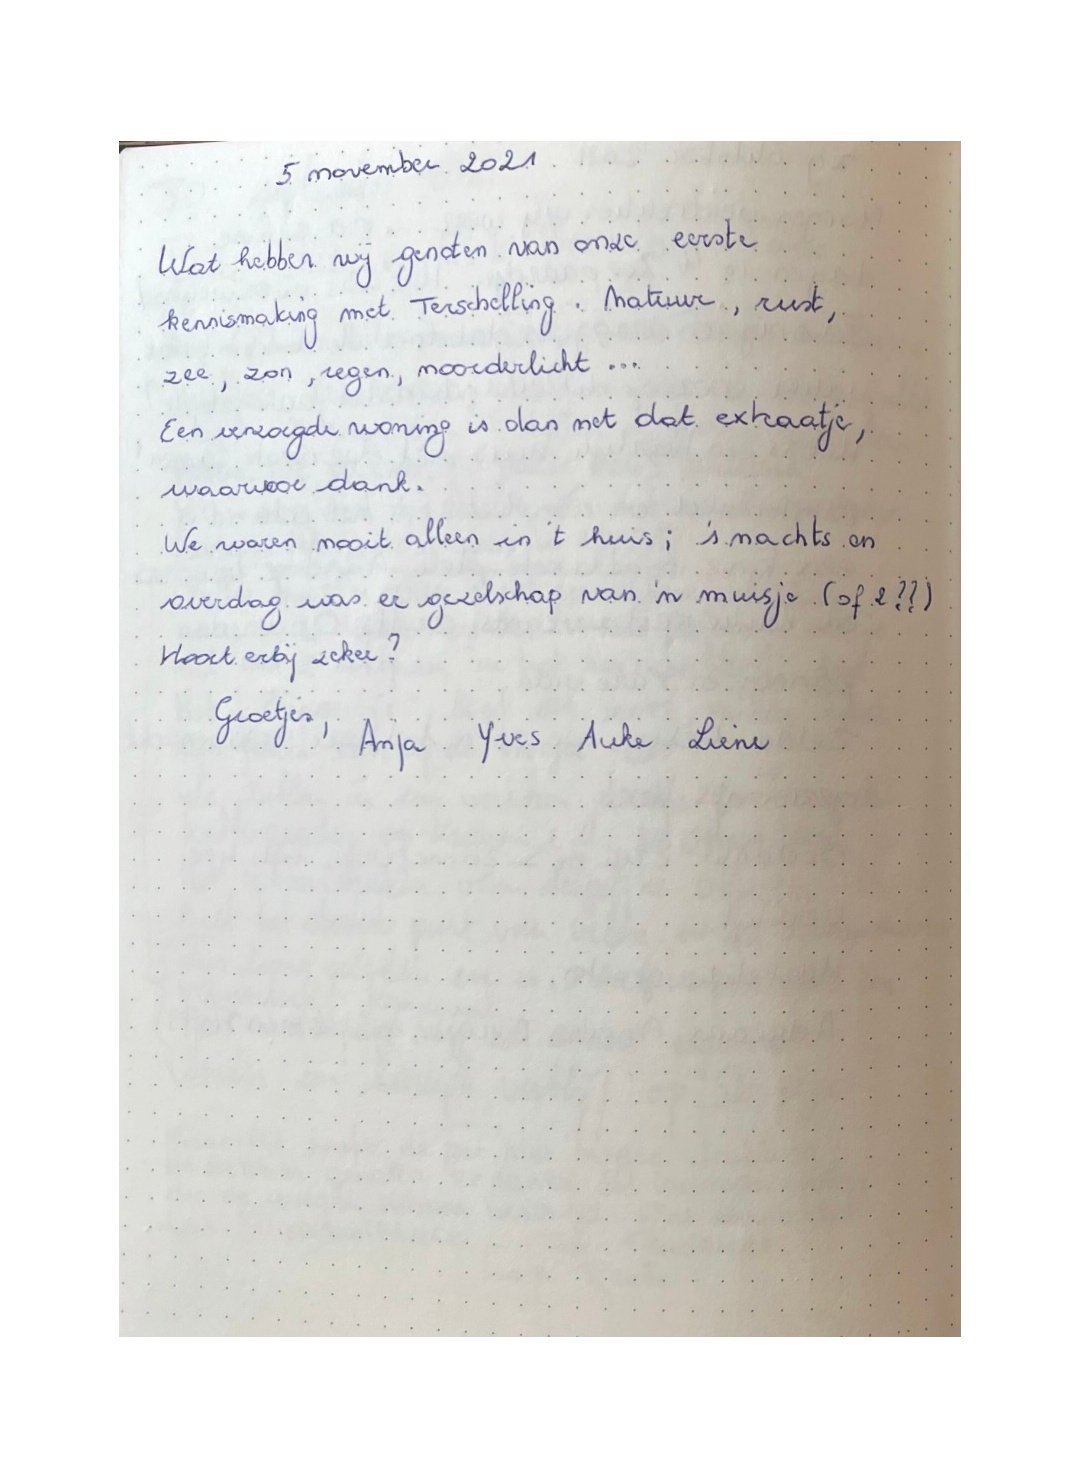 5 november 2021
Wat hebben wij genoten van onze eerste
kennismaking met Terschelling. Natuur, rust,
zee, zon, regen, noorderlicht ...
Een verzorgde woning is dan net dat extraatje,
waarvoor dank.
We waren nooit alleen in 't huis; 's nachts en
overdag was er gezelschap van 'n muisje (of 2??)
Hoort erbij zeker?
Groetjes,
Anja Yves Auke Liene